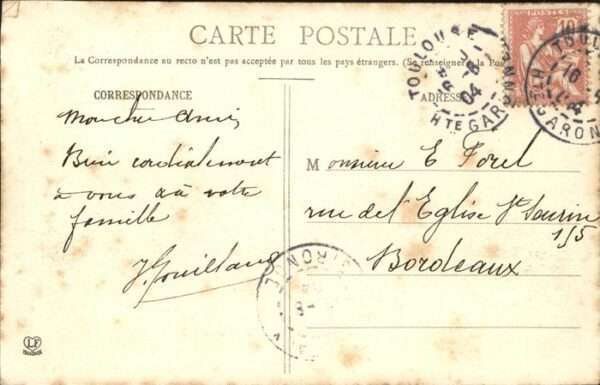 CARTE POSTALE
La Correspondance au recto n'est pas acceptée par tous les pays étrangers. (Se renseigner à la Pos
CORRESPONDANCE
ADRESSE
Mon cher Ami
Bien cordialement
à vous et à votre
famille
M onsieur E Forel
rue de l'Eglise St Seurin
155
Bordeaux
TOULOUSE
04
HTE GARONNE
POSTES
10
TOUL
16
HTE GARON
GIRONDE
LF